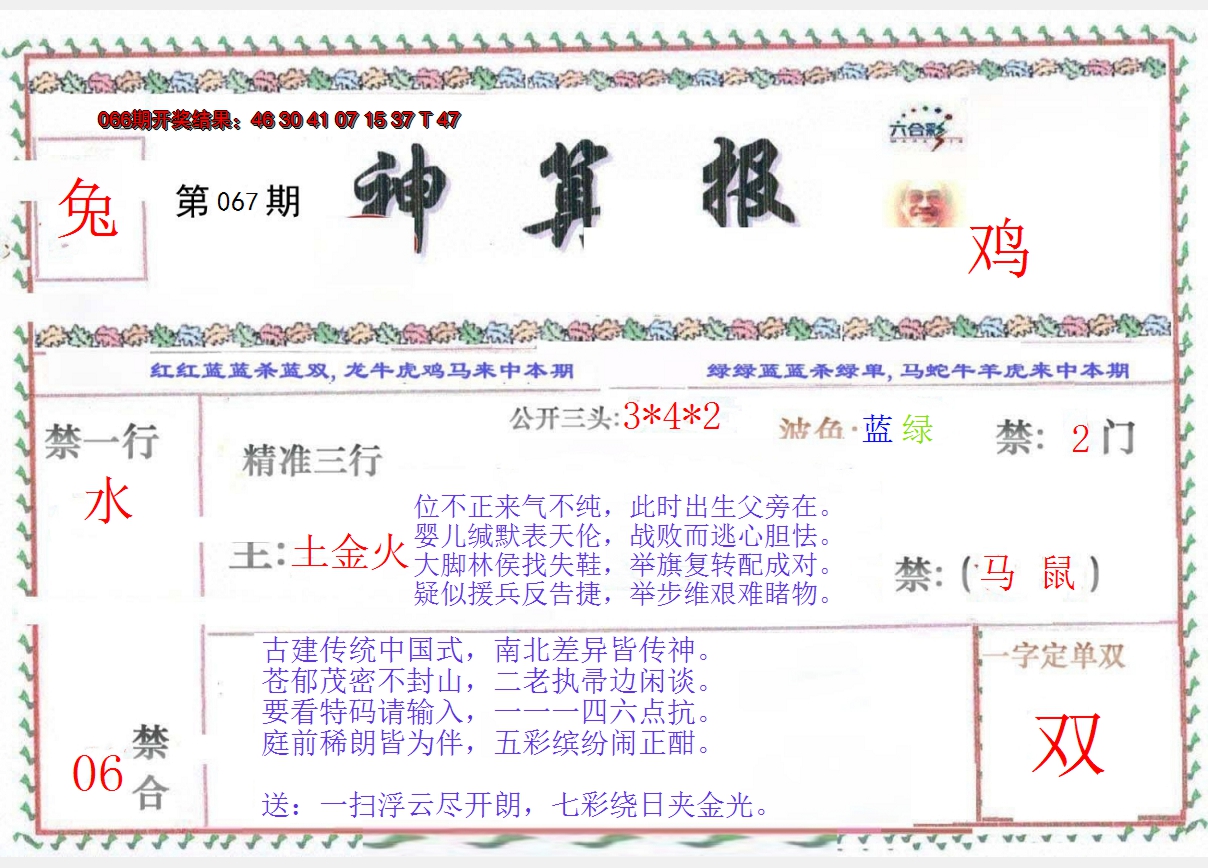 066期开奖结果：46 30 41 07 15 37 T 47
六合彩
兔
第 067 期
神 算 报
鸡
红红蓝蓝杀蓝双,龙牛虎鸡马来中本期
绿绿蓝蓝杀绿单,马蛇牛羊虎来中本期
禁一行
水
精准三行
公开三头:3*4*2
波色:蓝 绿
禁: 2 门
主:土金火
位不正来气不纯，此时出生父旁在。
婴儿缄默表天伦，战败而逃心胆怯。
大脚林侯找失鞋，举旗复转配成对。
疑似援兵反告捷，举步维艰难睹物。
禁:(马 鼠)
古建传统中国式，南北差异皆传神。
苍郁茂密不封山，二老执帚边闲谈。
要看特码请输入，一一一四六点抗。
庭前稀朗皆为伴，五彩缤纷闹正酣。
送：一扫浮云尽开朗，七彩绕日夹金光。
06
禁合
一字定单双
双